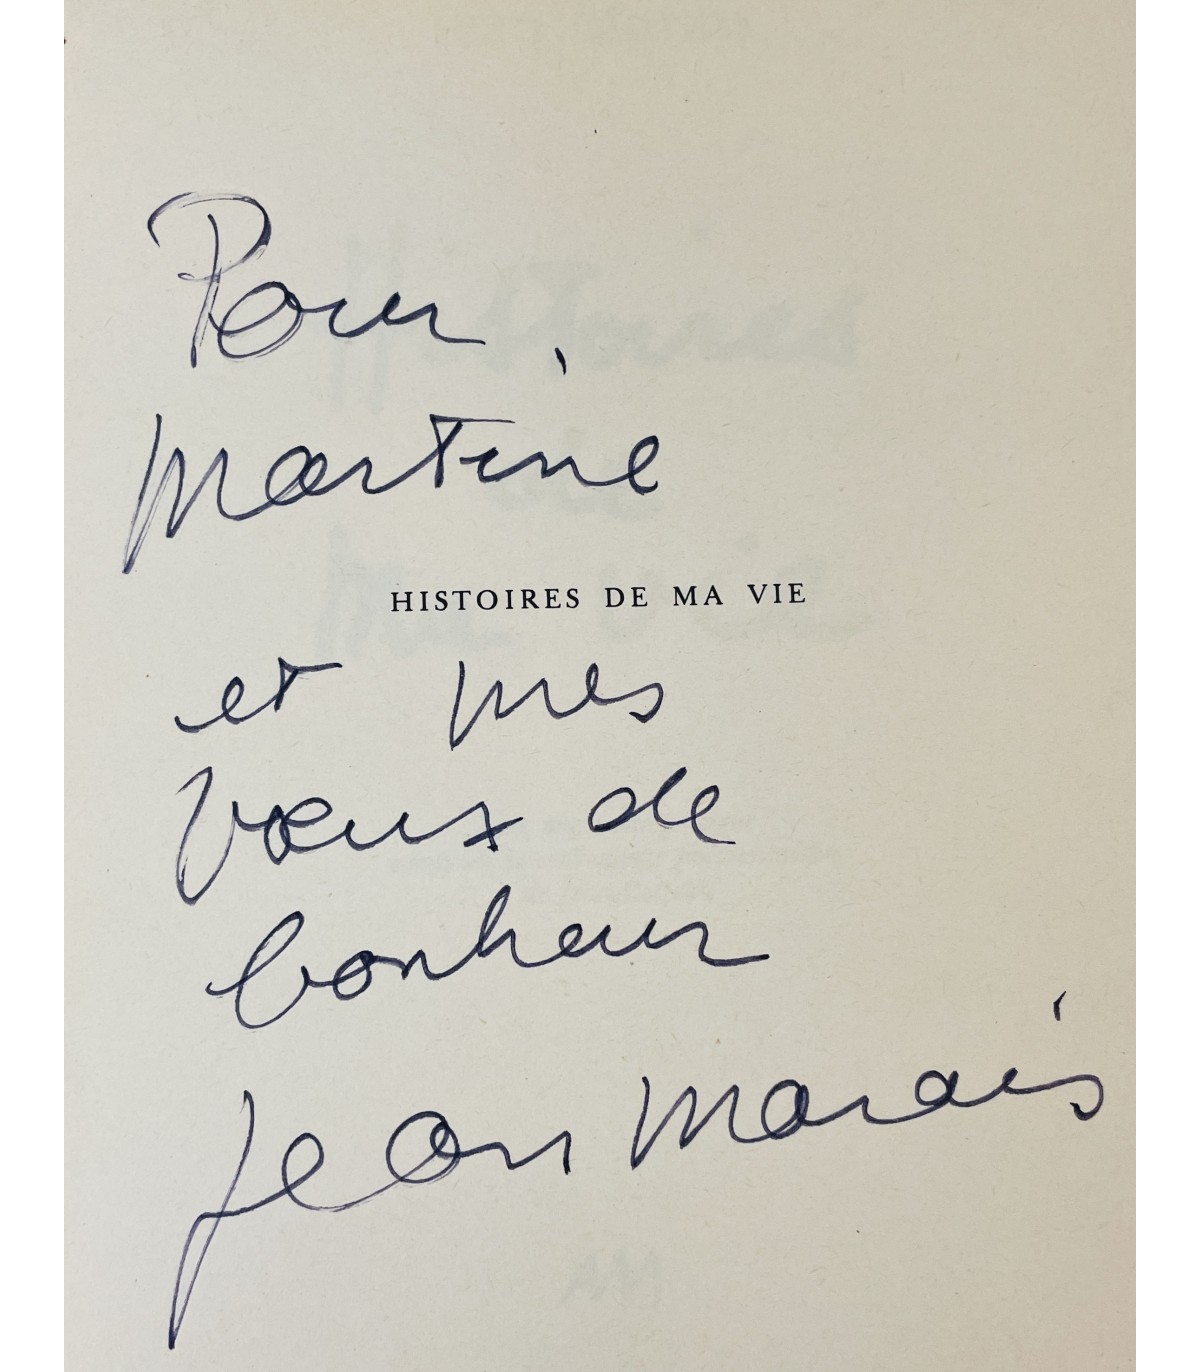 Pour
Martine
HISTOIRES DE MA VIE
et mes
vœux de
bonheur
Jean Marais